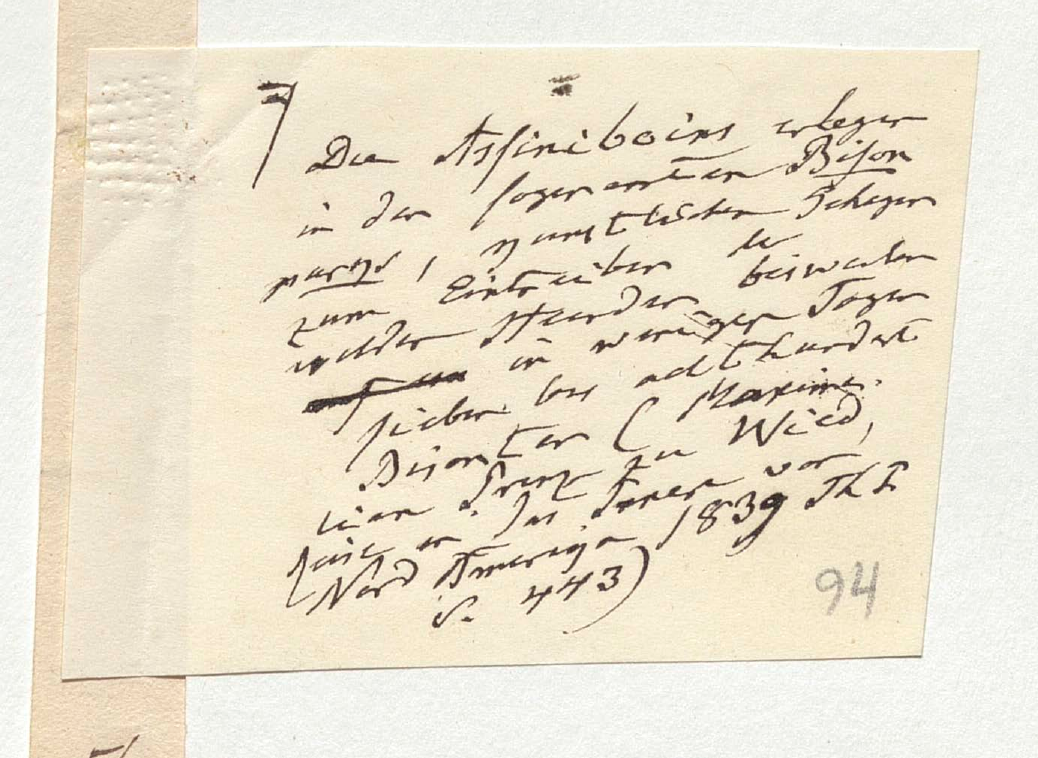 Die Assiniboins erlegen
in den sogenannten Bison
parcs, nämtlichen Gehegen
zum Eintreiben der
wilden Heerden bisweilen
in wenigen Tagen
sieben bis achthundert
Bisonten (Maximi-
lian Prinz zu Wied,
Reise in das Innere von
Nord America 1839 Th I
S. 443)
94